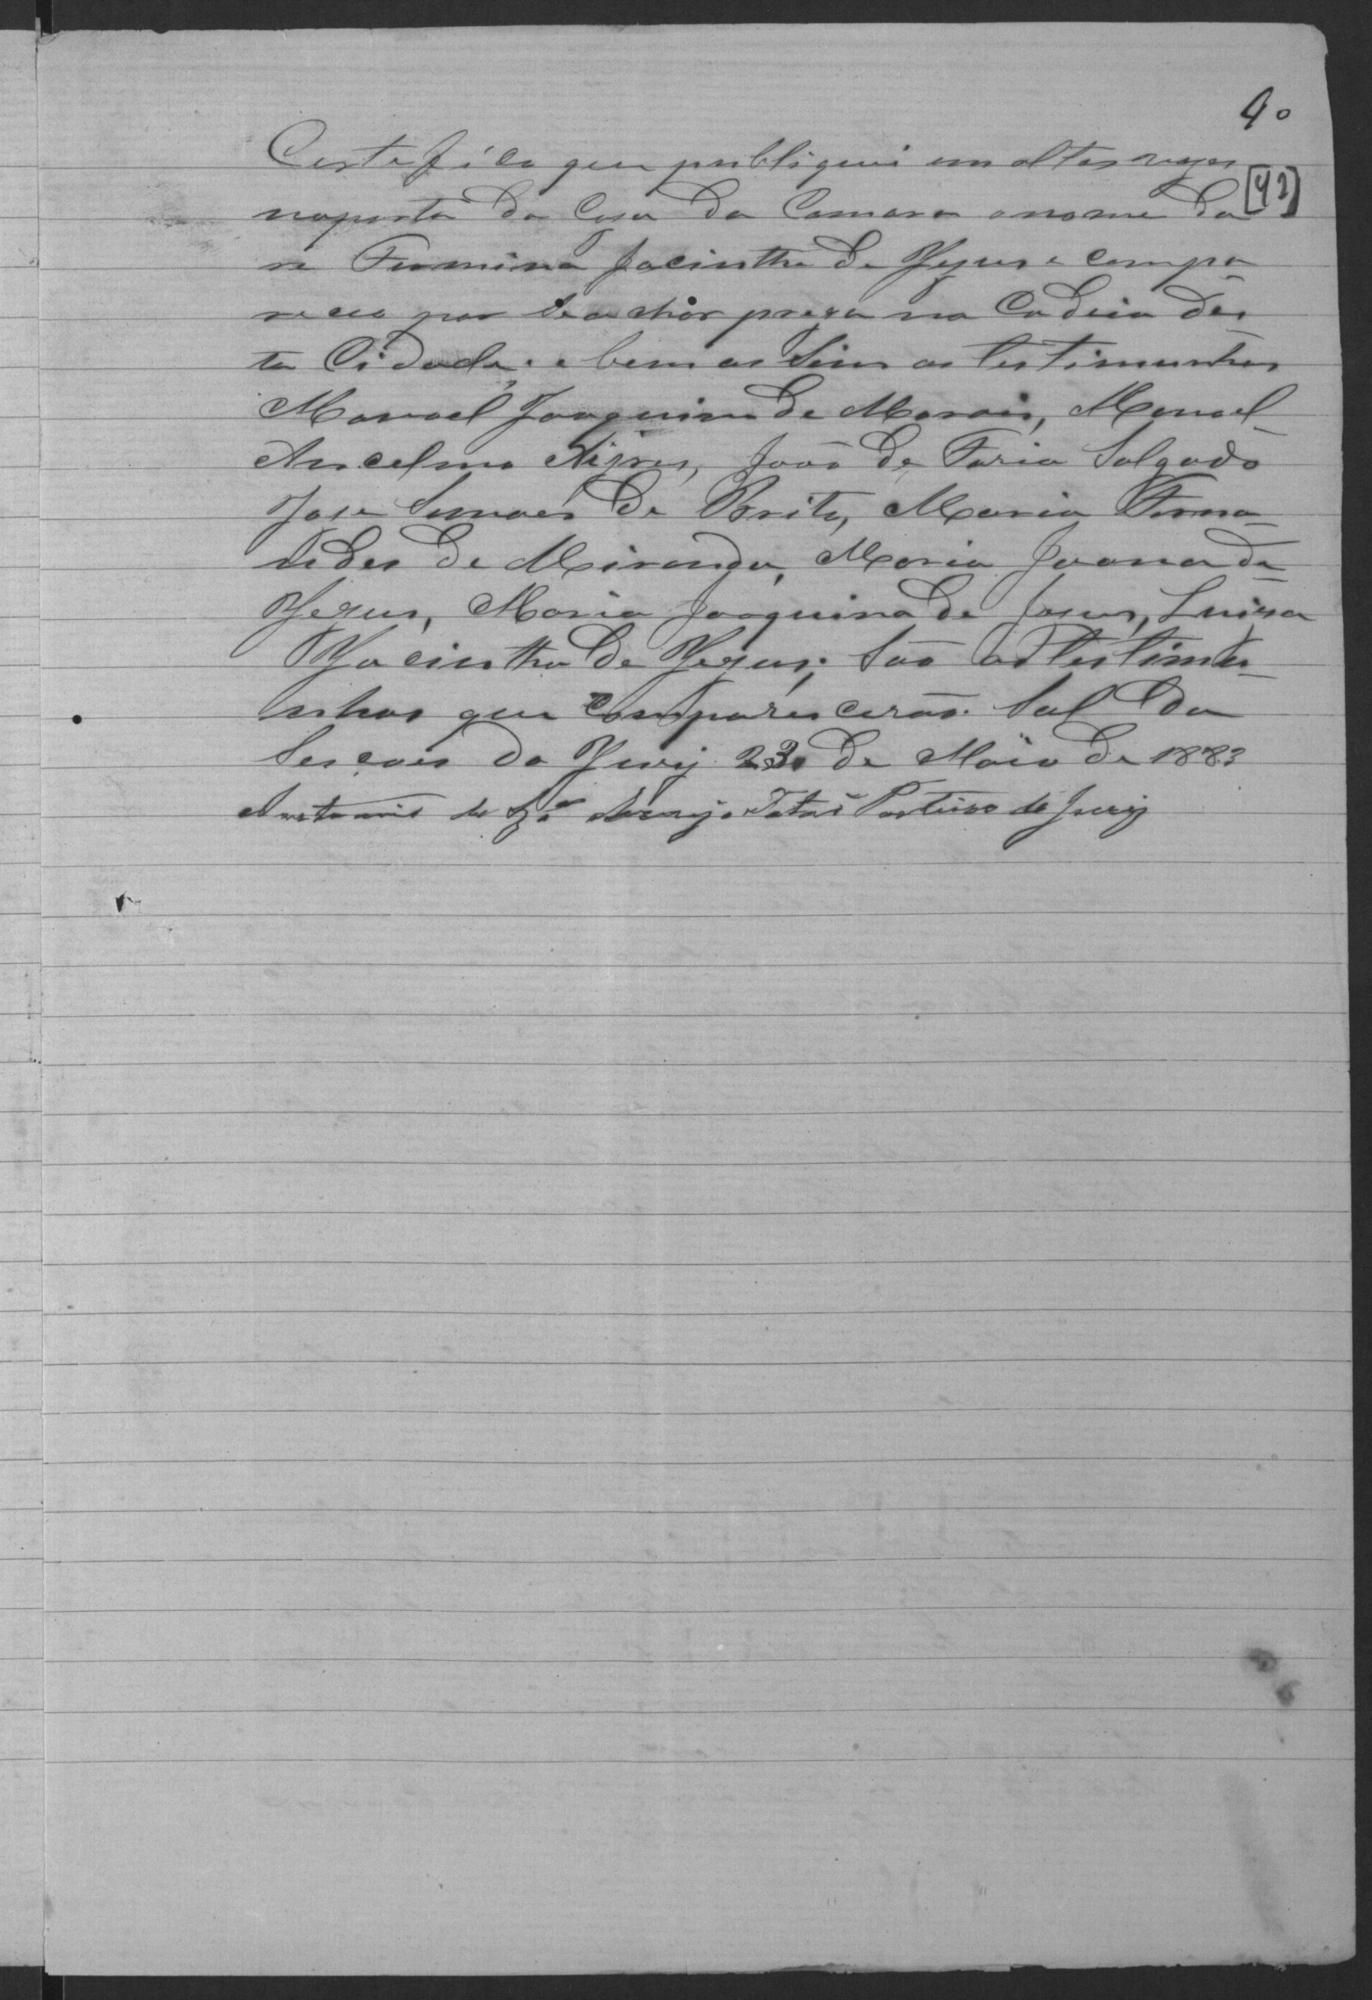 40
[42]
Certefico que publiquei em altas vozes
naporta da Casa da Camara onome da
re Firmina Jacintha de Yezus e compa
receo por se achar preza na Cadeia des
ta Cidade. e bem as Sim as testimunhas
Manoel Joaquim de Morais, Manoel
Ancelmo Aires, João de Faria Salgado
Jose Simoes de Brito, Maria Firna
ndes de Miranda, Maria Joana de
Yezus, Maria Joaquina de Jezus, Luiza
Yacintha de Yezus; São as testimu
nhas que compareicerão. Sal da
Seçoes do Jury 23 de Maio de 1883
Antonio de Araujo Porteiro do Jury